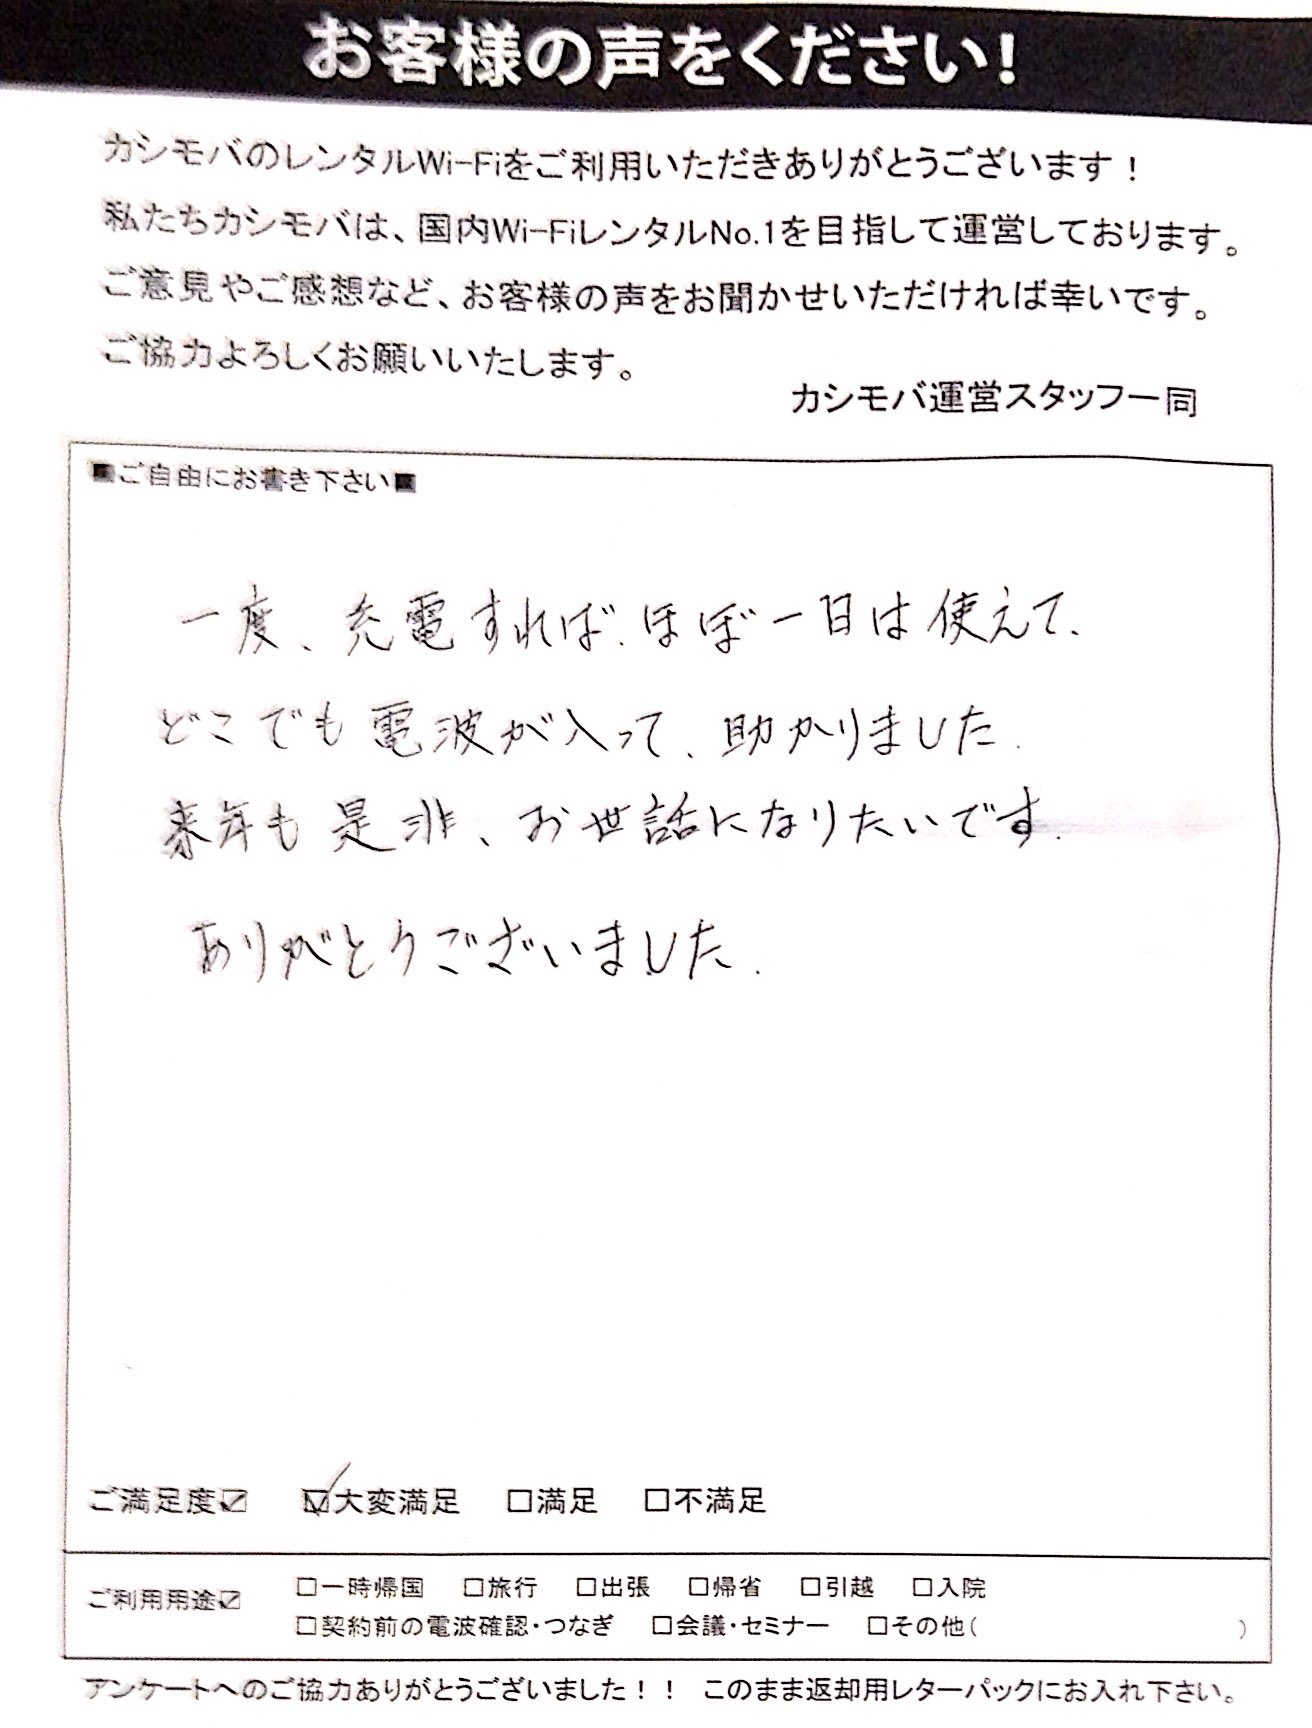 お客様の声をください!
カシモバのレンタルWi-Fiをご利用いただきありがとうございます！
私たちカシモバは、国内Wi-FiレンタルNo.1を目指して運営しております。
ご意見やご感想など、お客様の声をお聞かせいただければ幸いです。
ご協力よろしくお願いいたします。
カシモバ運営スタッフ一同
■ご自由にお書き下さい■
一度、充電すれば、ほぼ一日は使えて、
どこでも電波が入って、助かりました.
来年も是非、お世話になりたいです.
ありがとうございました.
ご満足度☑ ☑大変満足 □満足 □不満足
ご利用用途☑ □一時帰国 □旅行 □出張 □帰省 □引越 □入院
□契約前の電波確認・つなぎ □会議・セミナー □その他( )
アンケートへのご協力ありがとうございました！！ このまま返却用レターパックにお入れ下さい。